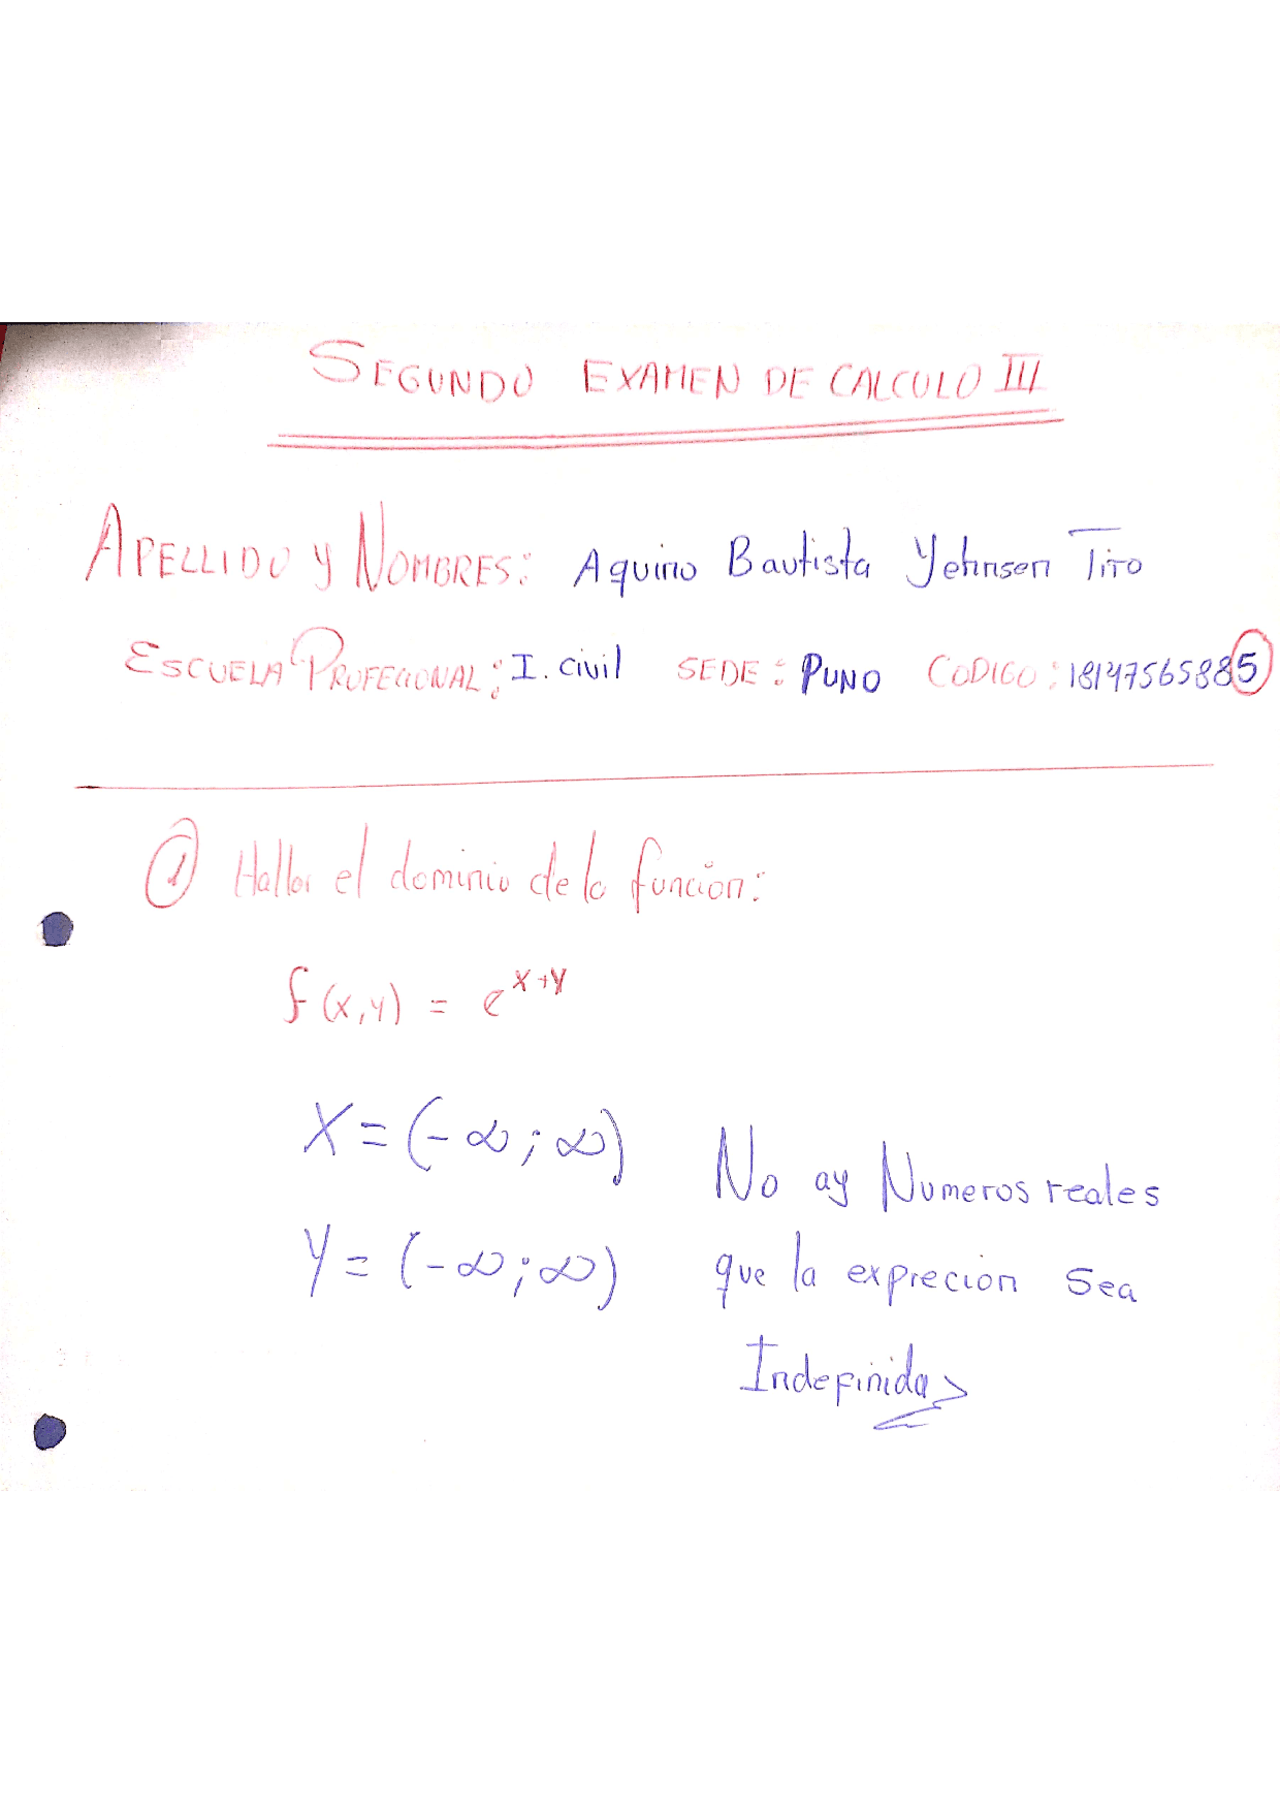 SEGUNDO EXAMEN DE CALCULO III
APELLIDO Y NOMBRES: Aquino Bautista Yehnson Tito
ESCUELA PROFECIONAL: I. civil SEDE: PUNO CODIGO: 18147565885
① Hallar el dominio de la función:
f(x,y) = e^x+y
X = (-∞; ∞) No ay Numeros reales
Y = (-∞; ∞) que la expreción sea
Indefinida